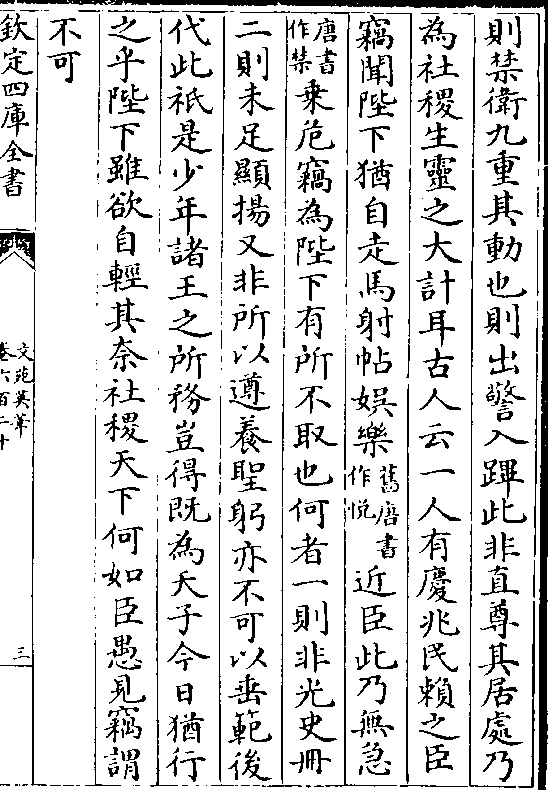 則禁衛九重其動也則出警入蹕此非直尊其居處乃
為社稷生靈之大計耳古人云一人有慶兆民賴之臣
竊聞陛下猶自走馬射帖娛樂舊唐書作悅近臣此乃無急
唐書作禁乗危竊為陛下有所不取也何者一則非光史冊
二則未足顯揚又非所以遵養聖躬亦不可以垂範後
代此袛是少年諸王之所務豈得既為天子今日猶行
之乎陛下雖欲自輕其奈社稷天下何如臣愚見竊謂
不可
欽定四庫全書
文苑英華
卷六百二十
三